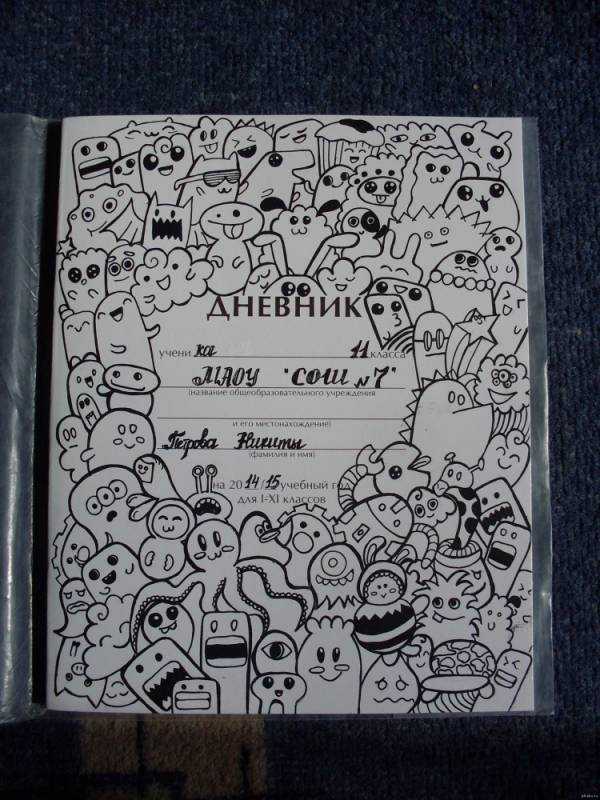 ДНЕВНИК
ученика 11 класса
МАОУ "СОШ №7"
(название общеобразовательного учреждения
и его местонахождение)
Перова Никиты
(фамилия и имя)
на 2014/15 учебный год
для I-XI классов